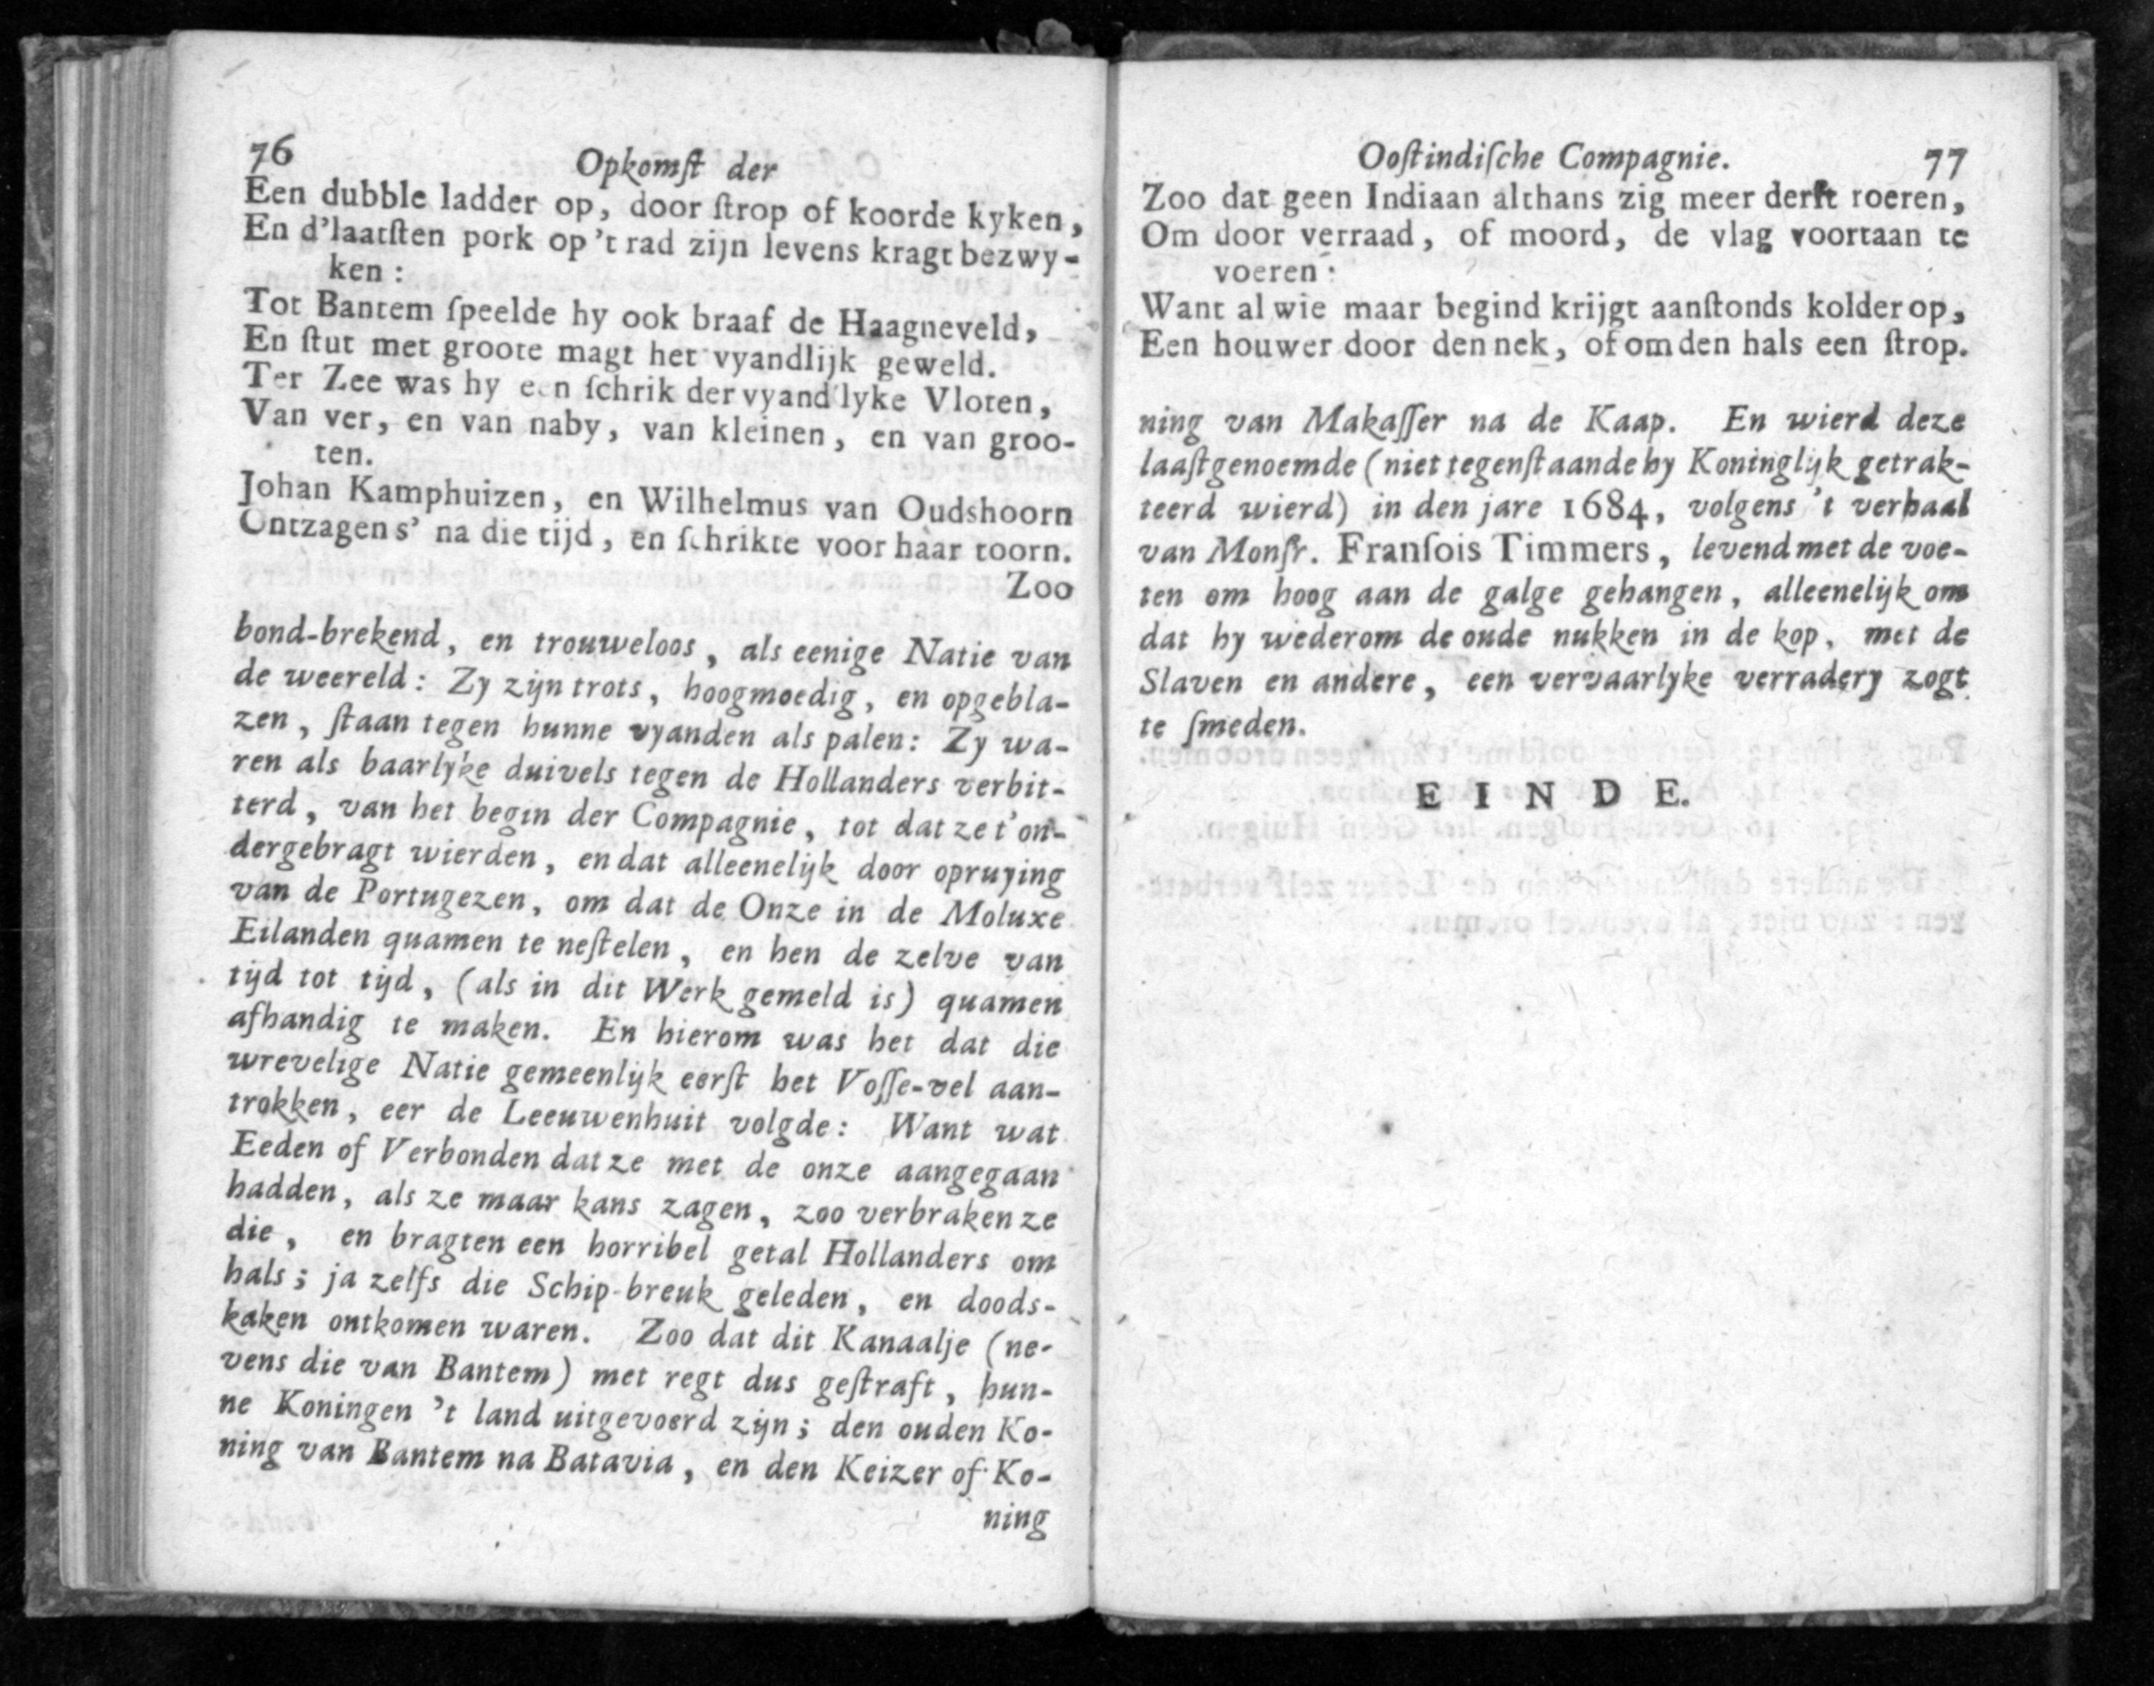 76
Opkomſt der
Een dubble ladder op, door ſtrop of koorde kyken,
En d'laatſten pork op 't rad zijn levens kragt bezwy-
ken:
Tot Bantem ſpeelde hy ook braaf de Haagneveld,
En ſtut met groote magt het vyandlijk geweld.
Ter Zee was hy een ſchrik der vyand'lyke Vloten,
Van ver, en van naby, van kleinen, en van groo-
ten.
Johan Kamphuizen, en Wilhelmus van Oudshoorn
Ontzagen s' na die tijd, en ſchrikte voor haar toorn.
Zoo
bond-brekend, en trouweloos, als eenige Natie van
de weereld: Zy zijn trots, hoogmoedig, en opgebla-
zen, ſtaan tegen hunne vyanden als palen: Zy wa-
ren als baarlyke duivels tegen de Hollanders verbit-
terd, van het begin der Compagnie, tot dat ze t'on-
dergebragt wierden, en dat alleenelijk door opruying
van de Portugezen, om dat de Onze in de Moluxe
Eilanden quamen te neſtelen, en hen de zelve van
tijd tot tijd, (als in dit Werk gemeld is) quamen
afhandig te maken. En hierom was het dat die
wrevelige Natie gemeenlijk eerſt het Voſſe-vel aan-
trokken, eer de Leeuwenhuit volgde: Want wat
Eeden of Verbonden dat ze met de onze aangegaan
hadden, als ze maar kans zagen, zoo verbraken ze
die, en bragten een horribel getal Hollanders om
hals; ja zelfs die Schip-breuk geleden, en doods-
kaken ontkomen waren. Zoo dat dit Kanaalje (ne-
vens die van Bantem) met regt dus geſtraft, hun-
ne Koningen 't land uitgevoerd zijn; den ouden Ko-
ning van Bantem na Batavia, en den Keizer of Ko-
ning
Ooſtindiſche Compagnie.
77
Zoo dat geen Indiaan althans zig meer derft roeren,
Om door verraad, of moord, de vlag voortaan te
voeren:
Want al wie maar begind krijgt aanſtonds kolder op,
Een houwer door den nek, of om den hals een ſtrop.
ning van Makaſſer na de Kaap. En wierd deze
laaſtgenoemde (niet tegenſtaande hy Koninglijk getrak-
teerd wierd) in den jare 1684, volgens 't verhaal
van Monſr. Franſois Timmers, levend met de voe-
ten om hoog aan de galge gehangen, alleenelijk om
dat hy wederom de oude nukken in de kop, met de
Slaven en andere, een vervaarlyke verradery zogt
te ſmeden.
EINDE.